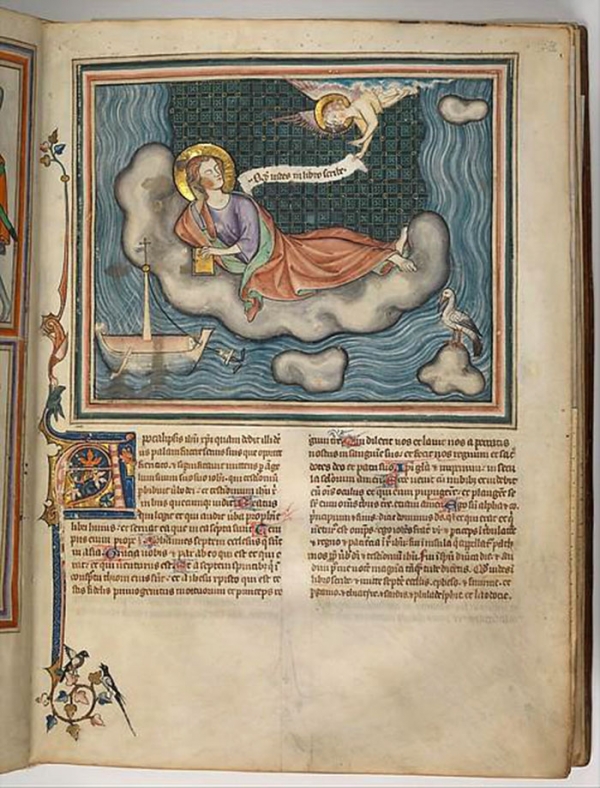 vides in libro scribe
pocalipsis ihu xpi quam dedit illi de
us palam facere servis suis que oportet
fieri cito & significavit mittens p angelum
suum servo suo iohi qui testimonium
phibuit testimonium ihu
in hiis quecumque vidit Beatus
qui legit et qui audit verba prophecie
libri huius et servat ea que in ea scripta sunt Tem
pus enim prope Iohannes septem ecclesiis que sunt
in asia Gracia vobis & pax ab eo qui est et qui e
rat et qui venturus est Et a septem spiritibus qui
conspectu throni eius sunt et a ihesu xpisto qui est te
stis fidelis primogenitus mortuorum et princeps re
gum terre Qui dilexit nos et lavit nos a peccatis
nostris in sanguine suo et fecit nos regnum et sacer
dotes deo et patri suo Ipi gloria & imperium in secu
la seculorum amen Ecce venit cum nubibus et videbit
eum omis oculus et qui eum pupugerunt et plangent se
super eum omnes tribus terre etiam amen Ego sum alpha & o
principium & finis dicit dominus deus qui est et qui erat et qui
venturus est
& regno & paciencia in ihu fui in insula que appellatur path
mos
vocem magnam tamquam tube dicentis Quod vides in
libro scribe & mitte septem ecclesiis epheso & smirne et
pergamo & thiatire & sardis & philadelphie et laodocie